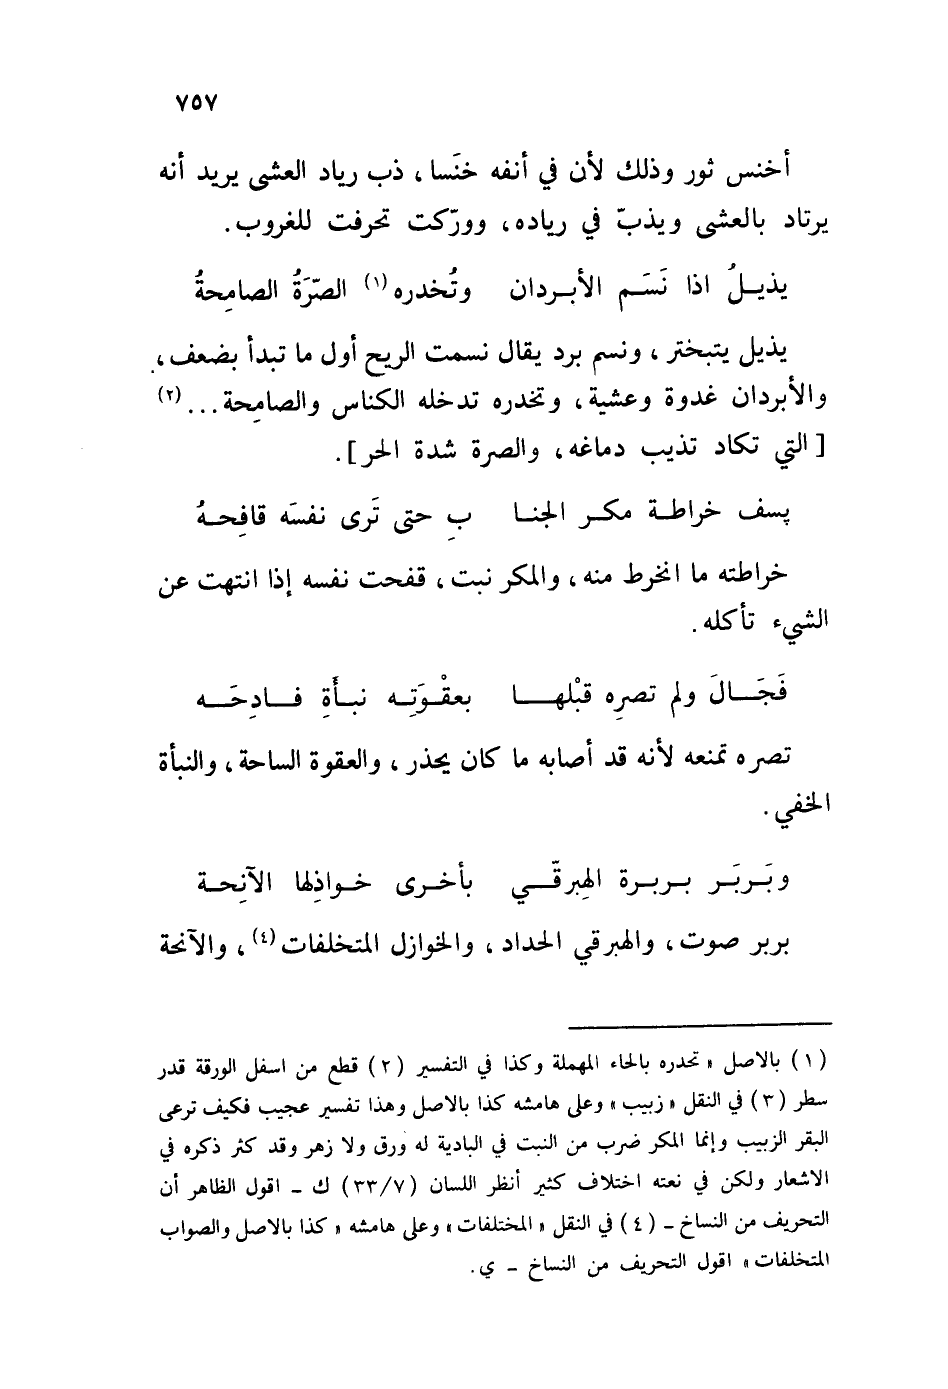 ٧٥٧
أخنس ثور وذلك لأن في أنفه خنَسا ، ذب رياد العشى يريد أنه
يرتاد بالعشى ويذبّ في رياده، وورّكت تحرفت للغروب.
يذيـلُ اذا نَسَـم الأبـردان وتُخدره (١) الصّرَةُ الصامِحةُ
يذيل يتبختر ، ونسم برد يقال نسمت الريح أول ما تبدأ بضعف ،
والأبردان غدوة وعشية، وتخدره تدخله الكناس والصامحة... (٢)
[ التي تكاد تذيب دماغه، والصرة شدة الحر ] .
يسف خراطـة مكـر الجنـا بِ حتى تَرى نفسَه قافِحـهُ
خراطته ما انخرط منه ، والمكر نبت ، قفحت نفسه إذا انتهت عن
الشيء تأكله .
فَجَـالَ ولم تصرِه قبْلهـا بعقْـوَتِـه نبـأَةِ فـادِحَـه
تصره تمنعه لأنه قد أصابه ما كان يحذر ، والعقوة الساحة ، والنبأة
الخفي .
وبَربَـر بـربـرة الهِبرقّـي بأخـرى خـواذِلها الآنِحـة
بربر صوت ، والهبرقي الحداد ، والخوازل المتخلفات (٤) ، والآنحة
(١) بالاصل « تحدره بالحاء المهملة وكذا في التفسير (٢) قطع من اسفل الورقة قدر
سطر (٣) في النقل « زبيب » وعلى هامشه كذا بالاصل وهذا تفسير عجيب فكيف ترعى
البقر الزبيب وإنما المكر ضرب من النبت في البادية له ورق ولا زهر وقد كثر ذكره في
الاشعار ولكن في نعته اختلاف كثير أنظر اللسان (٣٣/٧) ك ـ اقول الظاهر أن
التحريف من النساخ ـ (٤) في النقل « المختلفات » وعلى هامشه « كذا بالاصل والصواب
المتخلفات » اقول التحريف من النساخ ـ ي .